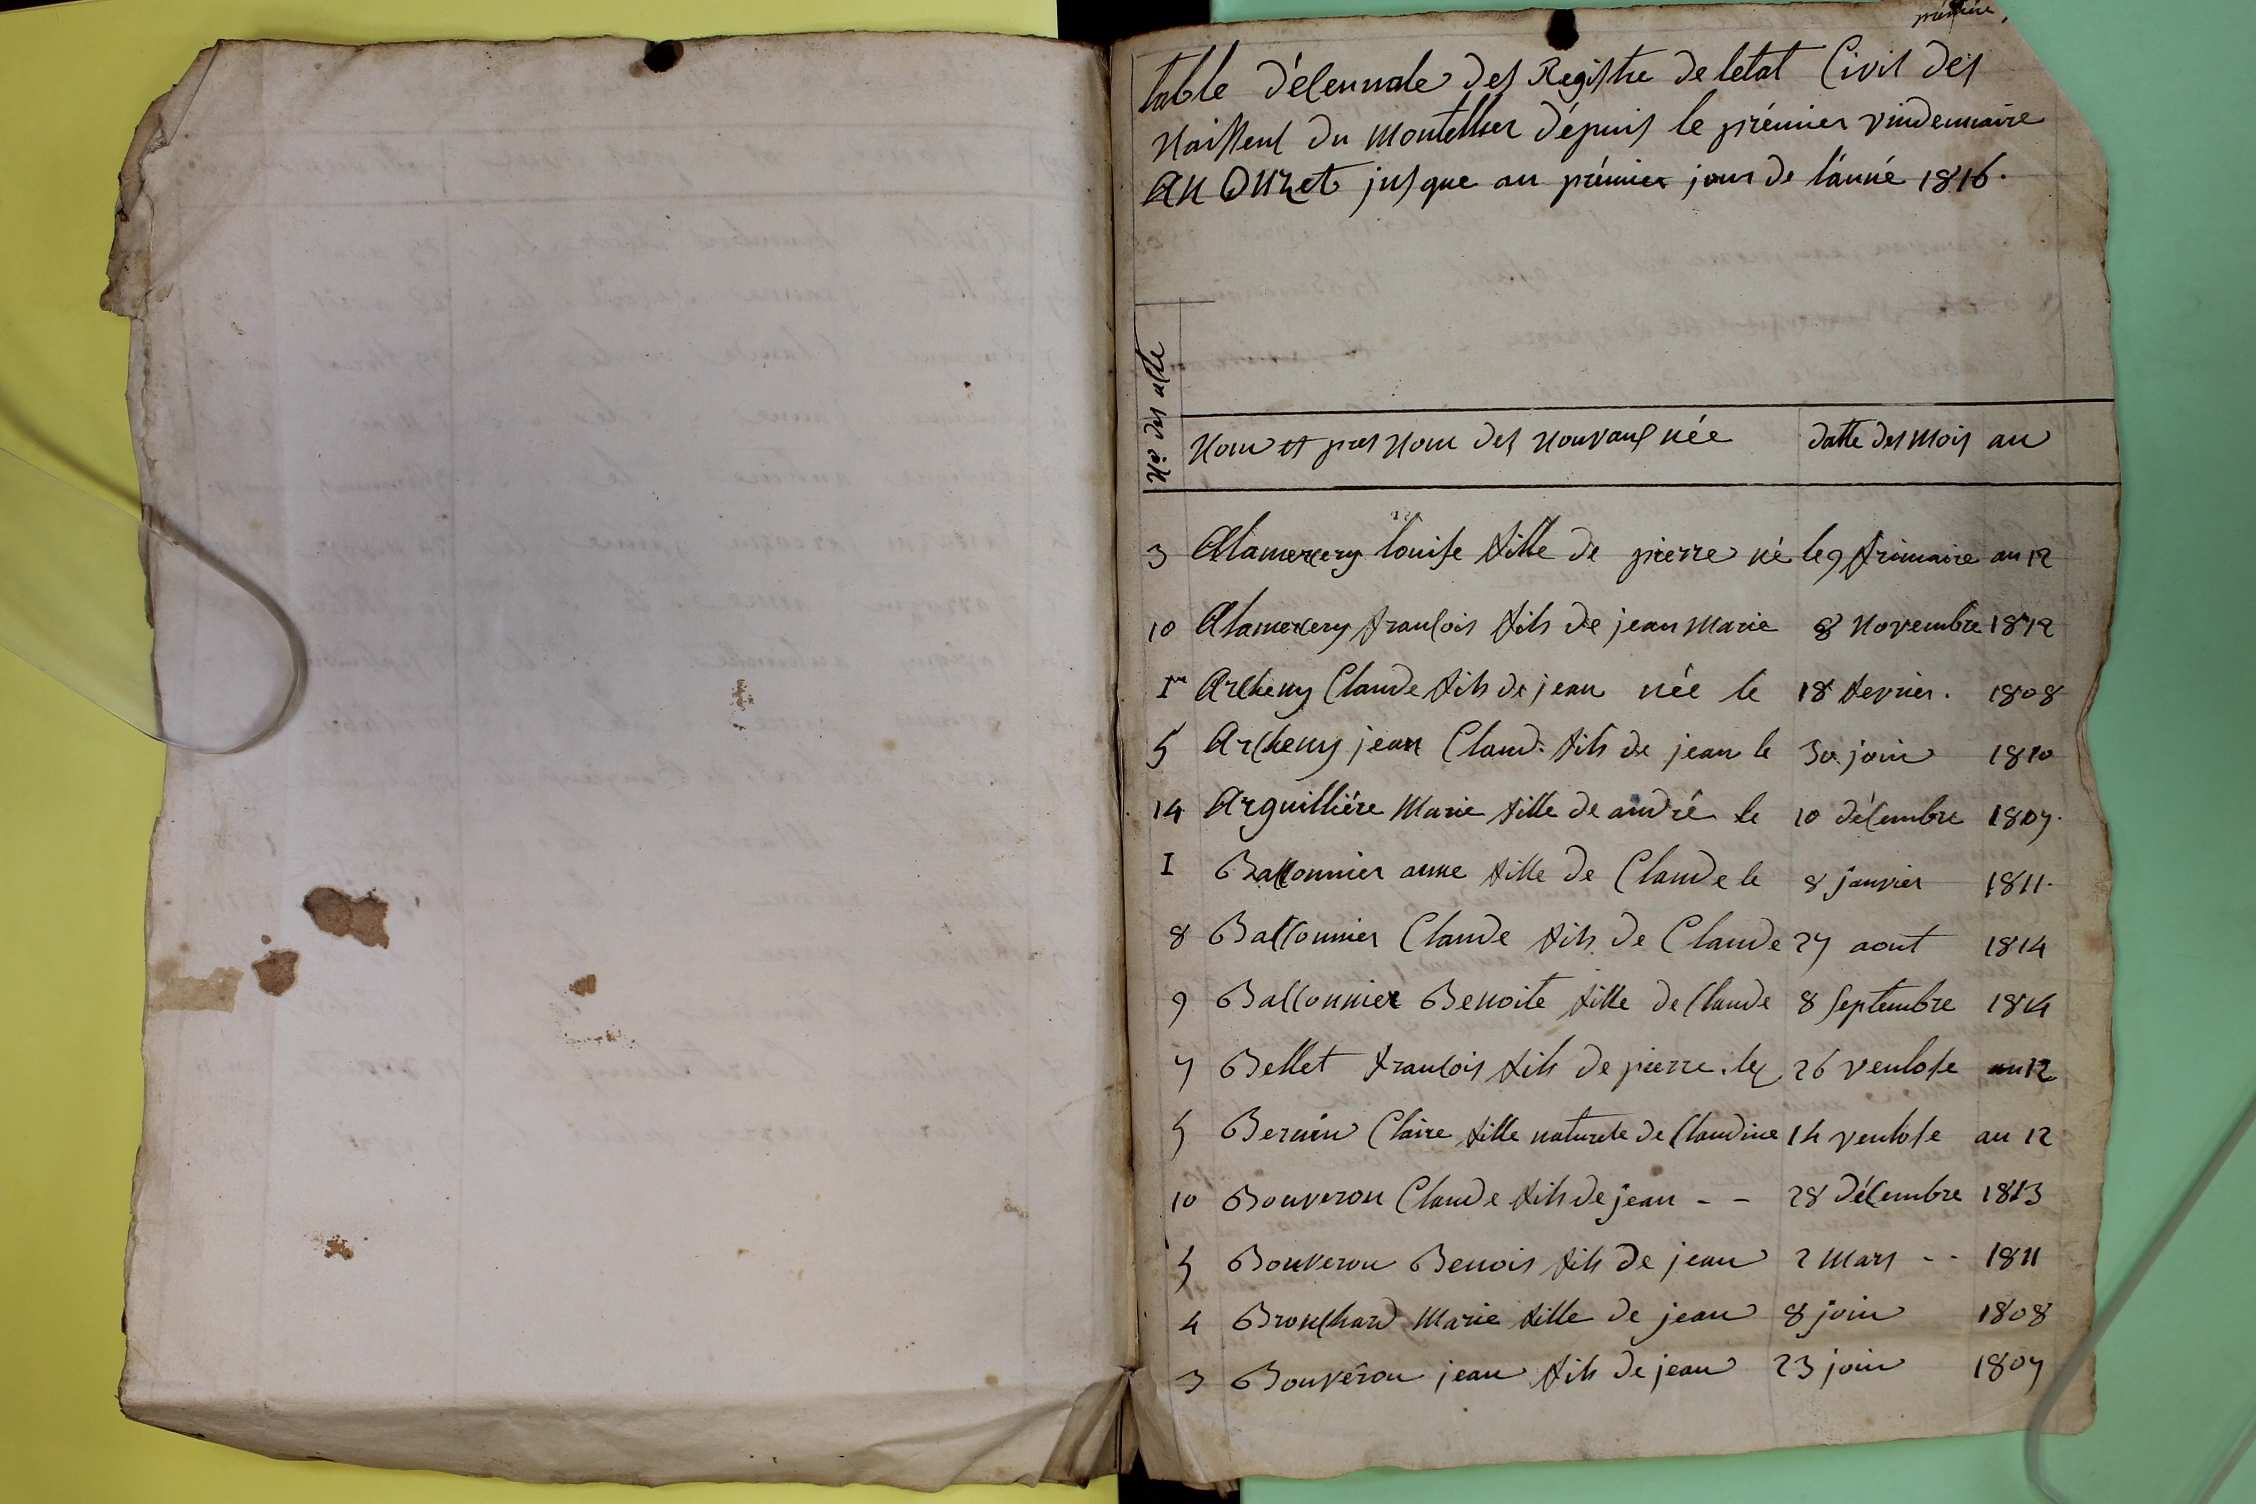 prémiére,
table décennale des Registre de letat Civil des
Naissent du Montellier dépuis le prémier vindemiaire
AN ONZet jusque au prémier jour de l'anné 1816.
No des acte
Nom et pres Nom des Nouvaux née datte des Mois an
3 Alamercery louise fille de pierre né le 9 frimaire an 12
10 Alamercery francois fils de jean Marie 8 Novembre 1812
1er Archeny Claude fils de jean née le 18 fevrier. 1808
5 Archeny jean Claud. fils de jean le 30 join 1810
14 Arguilliére Marie fille de andré le 10 décembre 1807.
I Balconnier anne fille de Claude le 8 janvier 1811.
8 Balconnier Claude fils de Claude 27 aout 1814
9 Balconnier Benoite fille de Claude 8 Septembre 1814
7 Bellet francois fils de pierre. le 26 ventose an 12
5 Bernin Claire fille naturele de Claudine 14 ventose an 12
10 Bouveron Claude fils de jean - - 28 décembre 1813
5 Bouveron Benois fils de jean 2 Mars - - 1811
4 Brouchard Marie fille de jean 8 join 1808
3 Bouveron jean fils de jean 23 join 1807